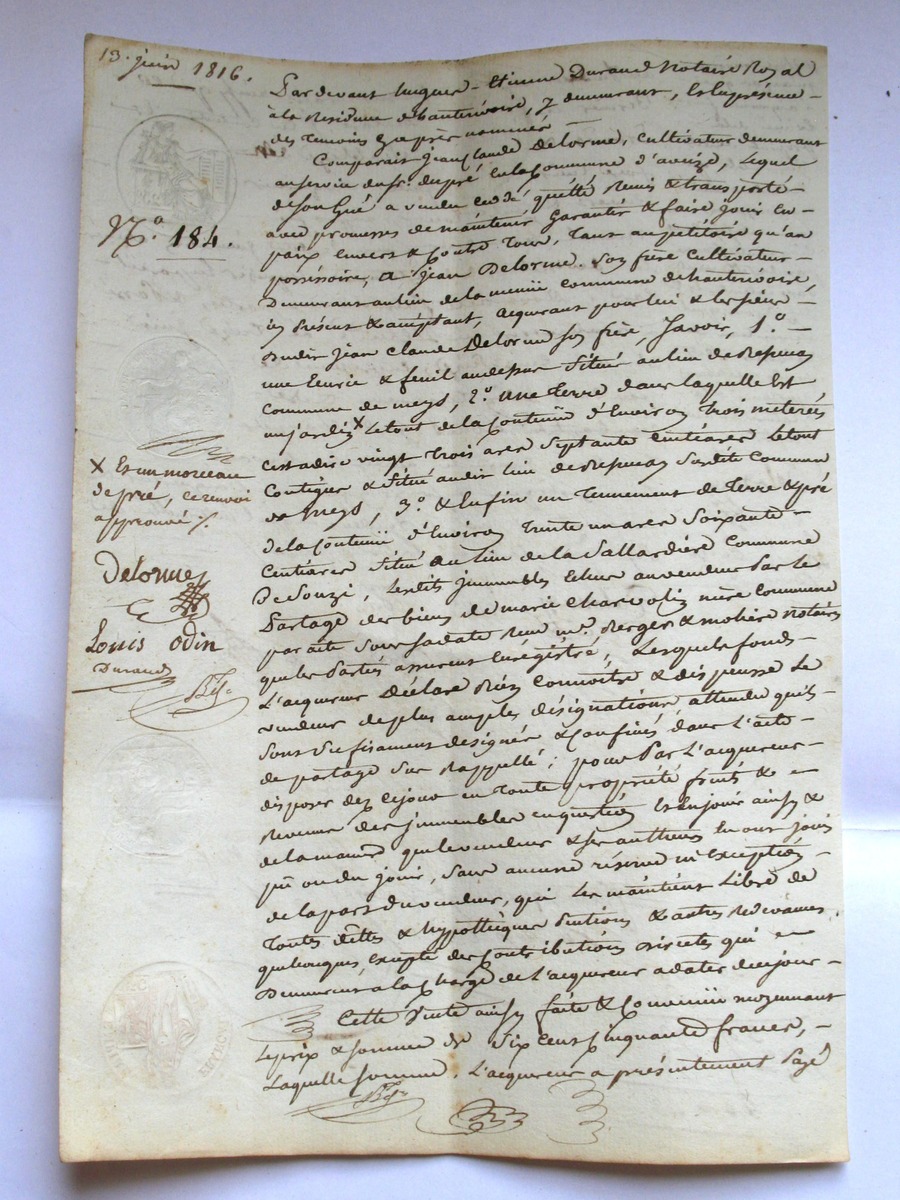 13. juin 1816.
Pardevant hugues-Etienne Durand Notaire Royal
à la Residence d'hauterivoire, y demeurant, & en présence
des Temoins Cy après nommés
Comparait Jean Claude Delorme, Cultivateur demeurant
au service du sr. dupré en la Commune d'aveize, lequel
de son Gré a vendu Ceddé quitté Remis & transporté
avec promesses de maintenir Garantir & faire jouir En
paix Envers & Contre Tous, Tant au pétitoire qu'au
possessoire, A Jean Delorme. Son frère Cultivateur
Demeurant au lieu de la commune d'hauterivoire,
ici Présent & acceptant, acquerant pour lui & les siens
dudit Jean Claude Delorme son frère, Savoir, 1.º
une Ecurie & fenil au dessus Situé au lieu de
Commune de meys, 2.º une Terre dans laquelle Est
un jardin X Le tout de la Contenüe d'Environ Trois meterés
C'est à dire vingt Trois ares Septante Centiares Le tout
Contigue & Situé audit lieu de Susdite Commune
de Meys, 3.º & Enfin un Tennement de Terre & pré
de la Contenüe d'Environ Trente un ares Soixante
Centiares Situé au lieu de la Sallardière Commune
De Souzi, Lesdits immeubles Echus au vendeur Par le
Partage des biens de marie Charvolin mère Commune
parâite Sous sa date Reçu me. Berger & notaires
que les Parties assurent Enrégistré, Lesquels fonds
L'acquereur Déclare Bien Connoitre & dispense Le
vendeur de plus amples désignations, attendu qu'ils
Sont Sufisament designés & Confinés dans L'acte
de partage Sus Rappellé; pour Par L'acquereur
disposer dez Cejour en Toute propriété fruits &
Revenus des immeubles en question Et En jouir ainsy &
de la manière que le vendeur & ses autheurs En ont joüi
pû ou dû jouir, Sans aucune réserve ni Exception
de la part du vendeur, qui Les maintient Libre de
Toutes dêttes & hypothèques & autres Redevances
quelconques, Excepté des Contributions directes qui
Demeurent à la Charge de L'acquereur à dater de ce jour
Cette Vente ainsy faite & Convenüe moyennant
Le prix & somme de Six Cens Cinquante francs,
Laquelle somme, L'acquereur a présentement Payé
N.º 184.
X Et un morceau
de pré, ce renvoi
approuvé ./.
Delorme
Louis Odin
Durand